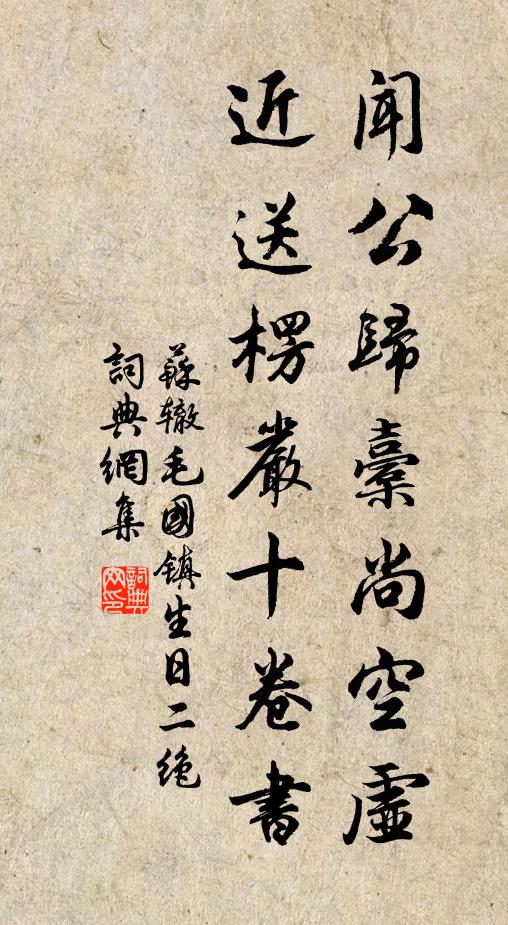 闻公歸橐尚空虛
近送楞嚴十卷書
蘇辙毛國镇生日二绝
詞典網集
詞典